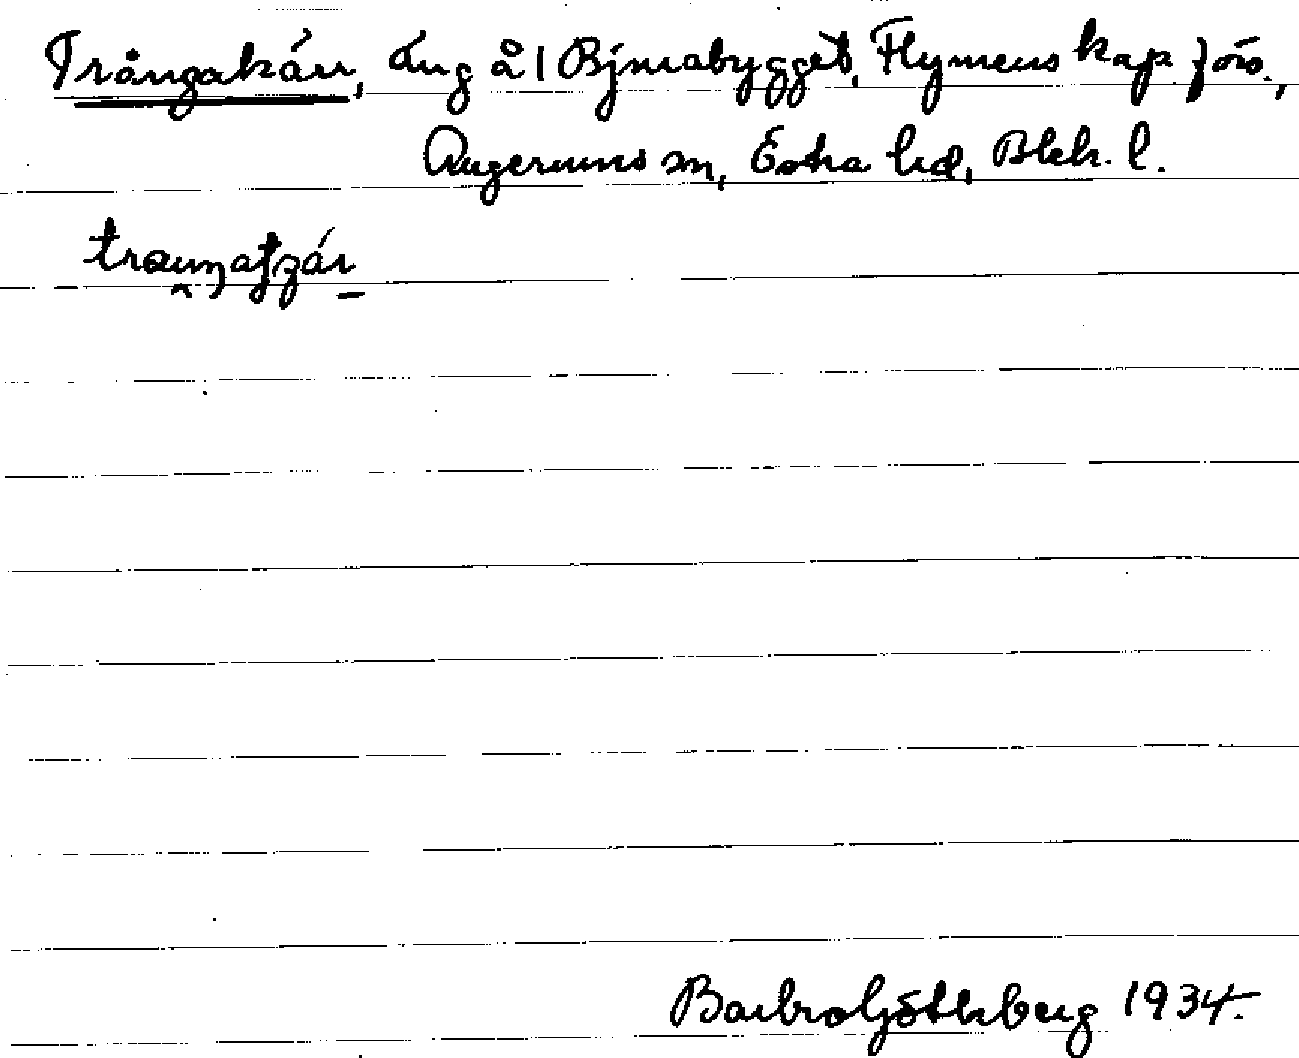 Trångakärr, äng å 1 Björnabygget, Flymens kap. förs.,
Augerums sn, Östra hd, Blek. l.
Barbro Götlberg 1934.